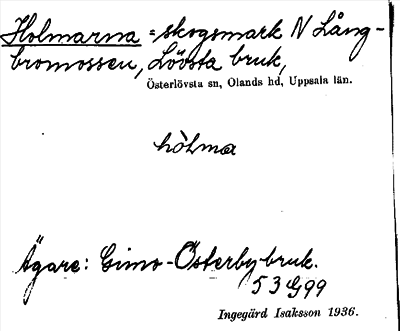 Holmarna = skogsmark N Lång-
bromossen, Lövsta bruk,
Österlövsta sn, Olands hd, Uppsala län.
hòlma
Ägare: Gimo-Österbybruk.
53 G99
Ingegärd Isaksson 1936.